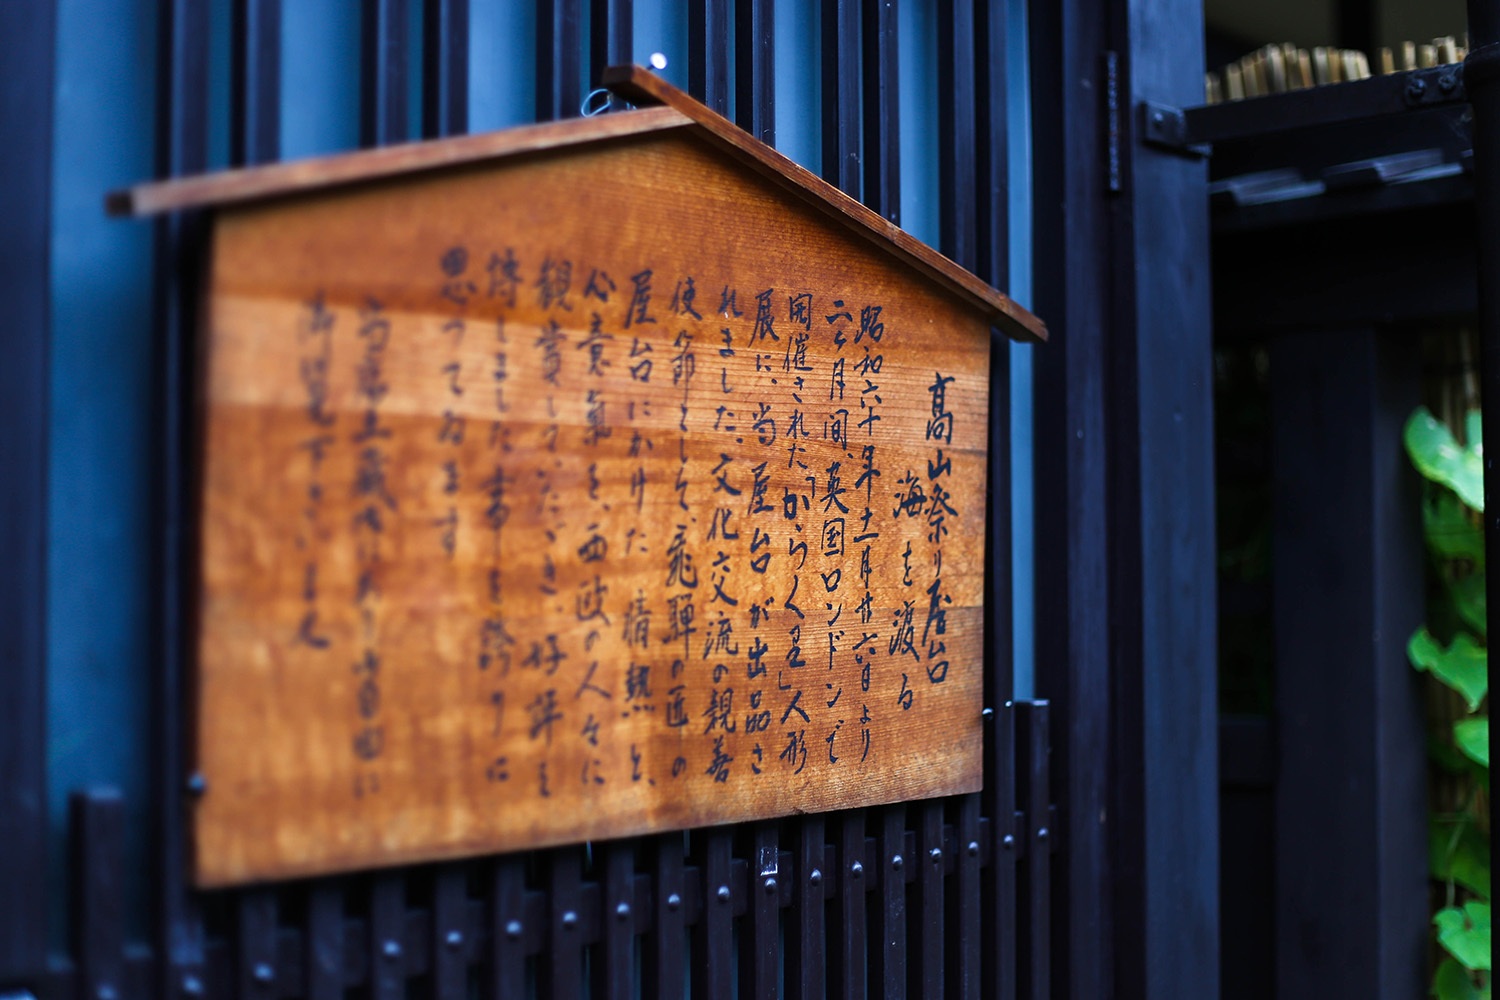 高山祭り屋台
海を渡る
昭和六十年十一月廿六日より
二ヶ月間、英国ロンドンで
開催された「からくり」人形
展に、当屋台が出品さ
れました、文化交流の親善
使節として、飛騨の匠の
屋台にかけた情熱と、
心意氣を、西欧の人々に
観賞していただき、好評を
博しました事を誇りに
思つてゐます
御覧下さいませ